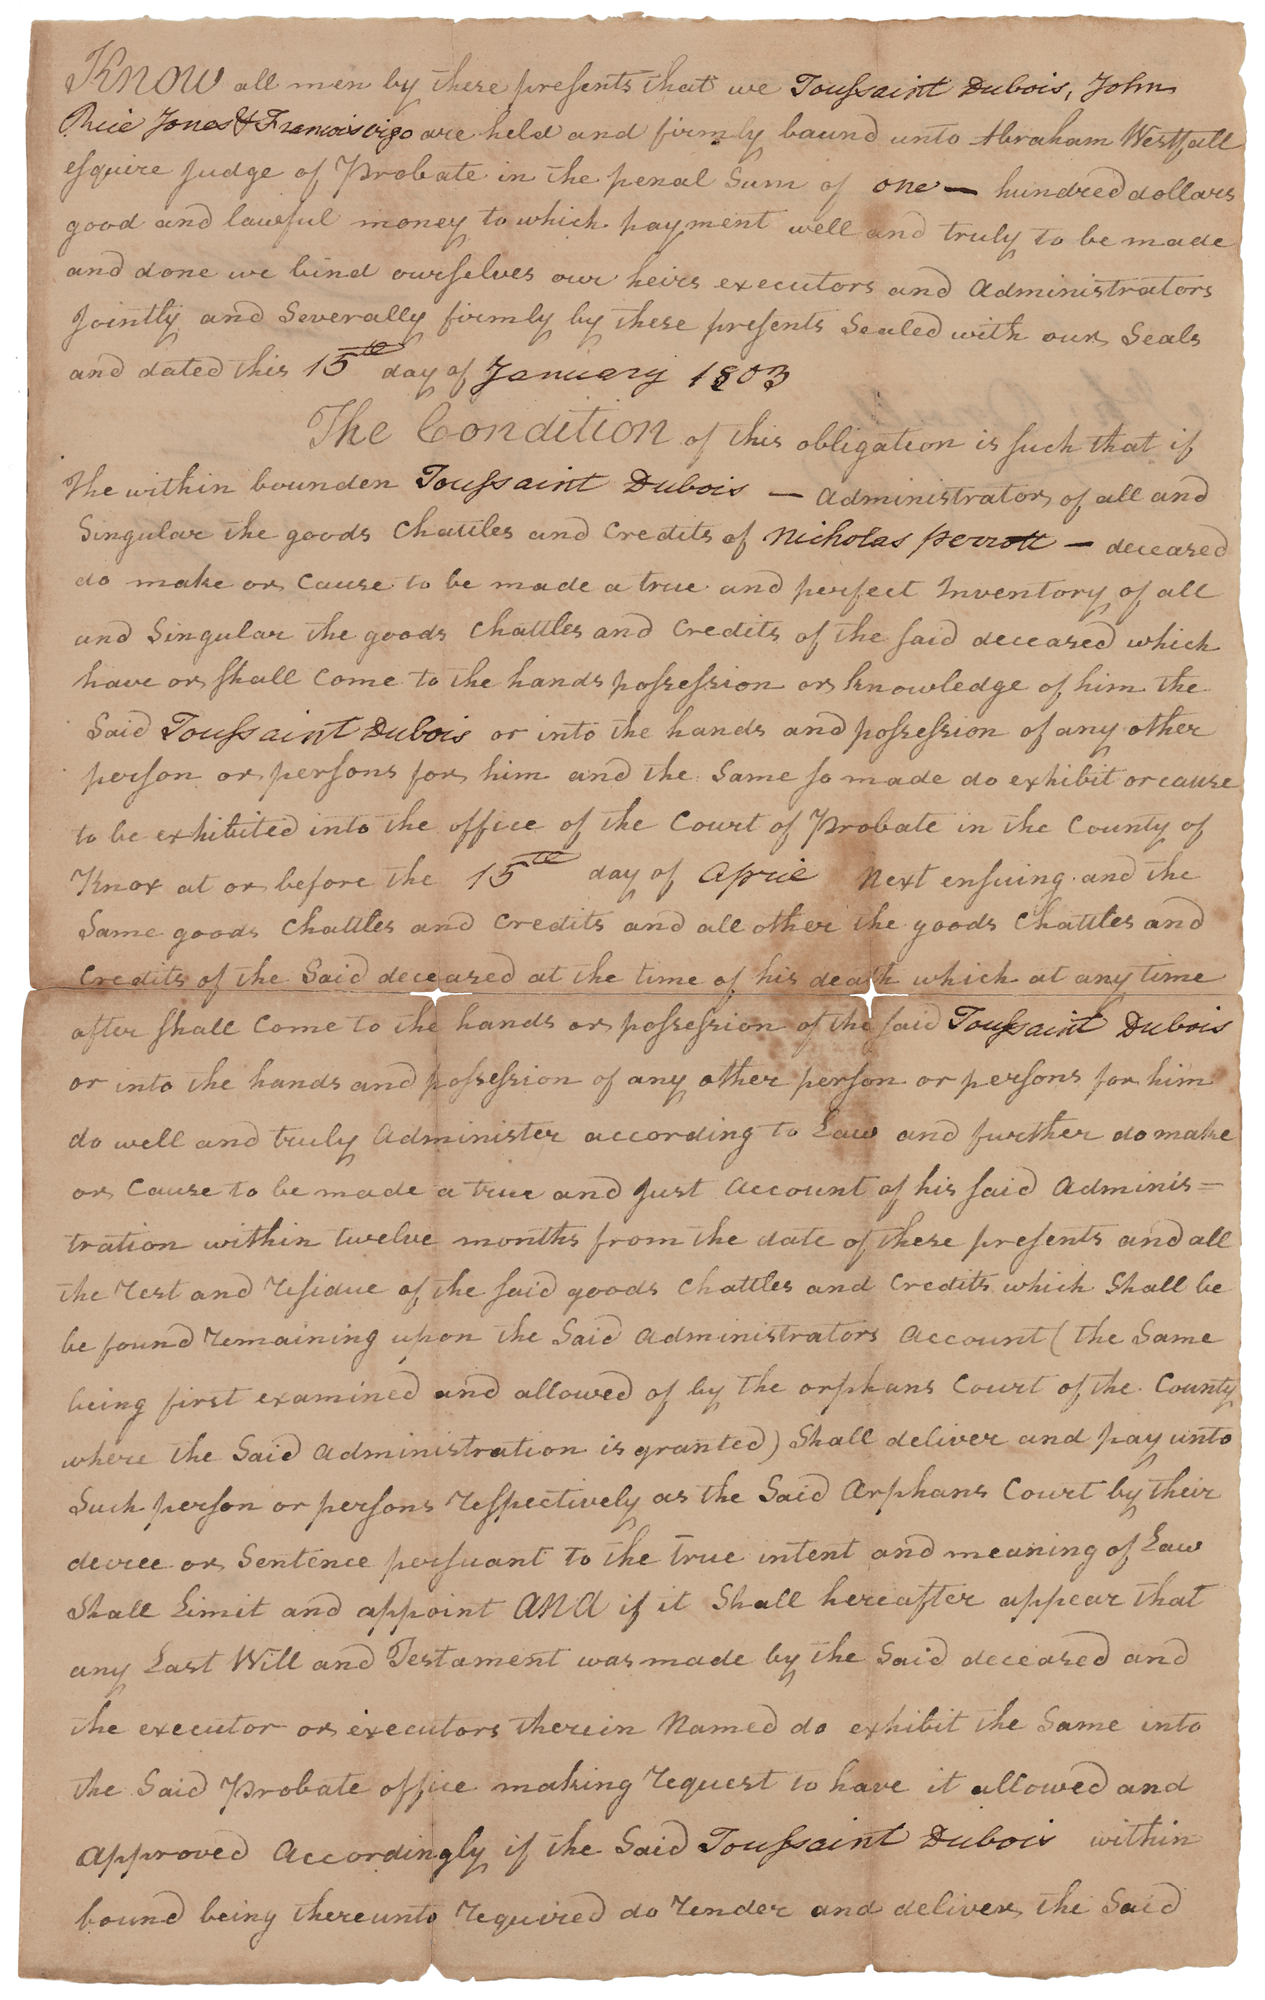 Know all men by these presents that we Toussaint Dubois, John
Rice Jones & Francois vigo are held and firmly baund unto Abraham Westfall
esquire Judge of Probate in the penal Sum of one — hundred dollars
good and lawful money to which payment well and truly to be made
and done we bind ourselves our heirs executors and Administrators
Jointly and Severally firmly by these presents Sealed with our Seals
and dated this 15th day of January 1803
The Condition of this obligation is such that if
the within bounden Toussaint Dubois — Administrator of all and
Singular the goods Chattles and Credits of Nicholas perrott — deceased
do make or Cause to be made a true and perfect Inventory of all
and Singular the goods Chattles and Credits of the said deceased which
have or shall Come to the hands possession or knowledge of him the
Said Toussaint Dubois or into the hands and possession of any other
person or persons for him and the Same so made do exhibit or cause
to be exhibited into the office of the Court of Probate in the County of
Knox at or before the 15th day of April Next ensuing and the
Same goods Chattles and Credits and all other the goods Chattles and
Credits of the Said deceased at the time of his death which at any time
after shall Come to the hands or possession of the said Toussaint Dubois
or into the hands and possession of any other person or persons for him
do well and truly Administer according to Law and further do make
or Cause to be made a true and Just Account of his said Adminis=
tration within twelve months from the date of these presents and all
the rest and residue of the said goods Chattles and Credits which Shall be
be found remaining upon the Said Administrators Account (the Same
being first examined and allowed of by the orphans Court of the County
where the Said Administration is granted) Shall deliver and pay unto
Such person or persons respectively as the Said Orphans Court by their
decree or Sentence persuant to the true intent and meaning of Law
Shall Limit and appoint AND if it Shall hereafter appear that
any Last Will and Testament was made by the Said deceased and
the executor or executors therein Named do exhibit the Same into
the Said Probate office making request to have it allowed and
Approved Accordingly if the Said Toussaint Dubois within
bound being thereunto required do render and deliver the Said